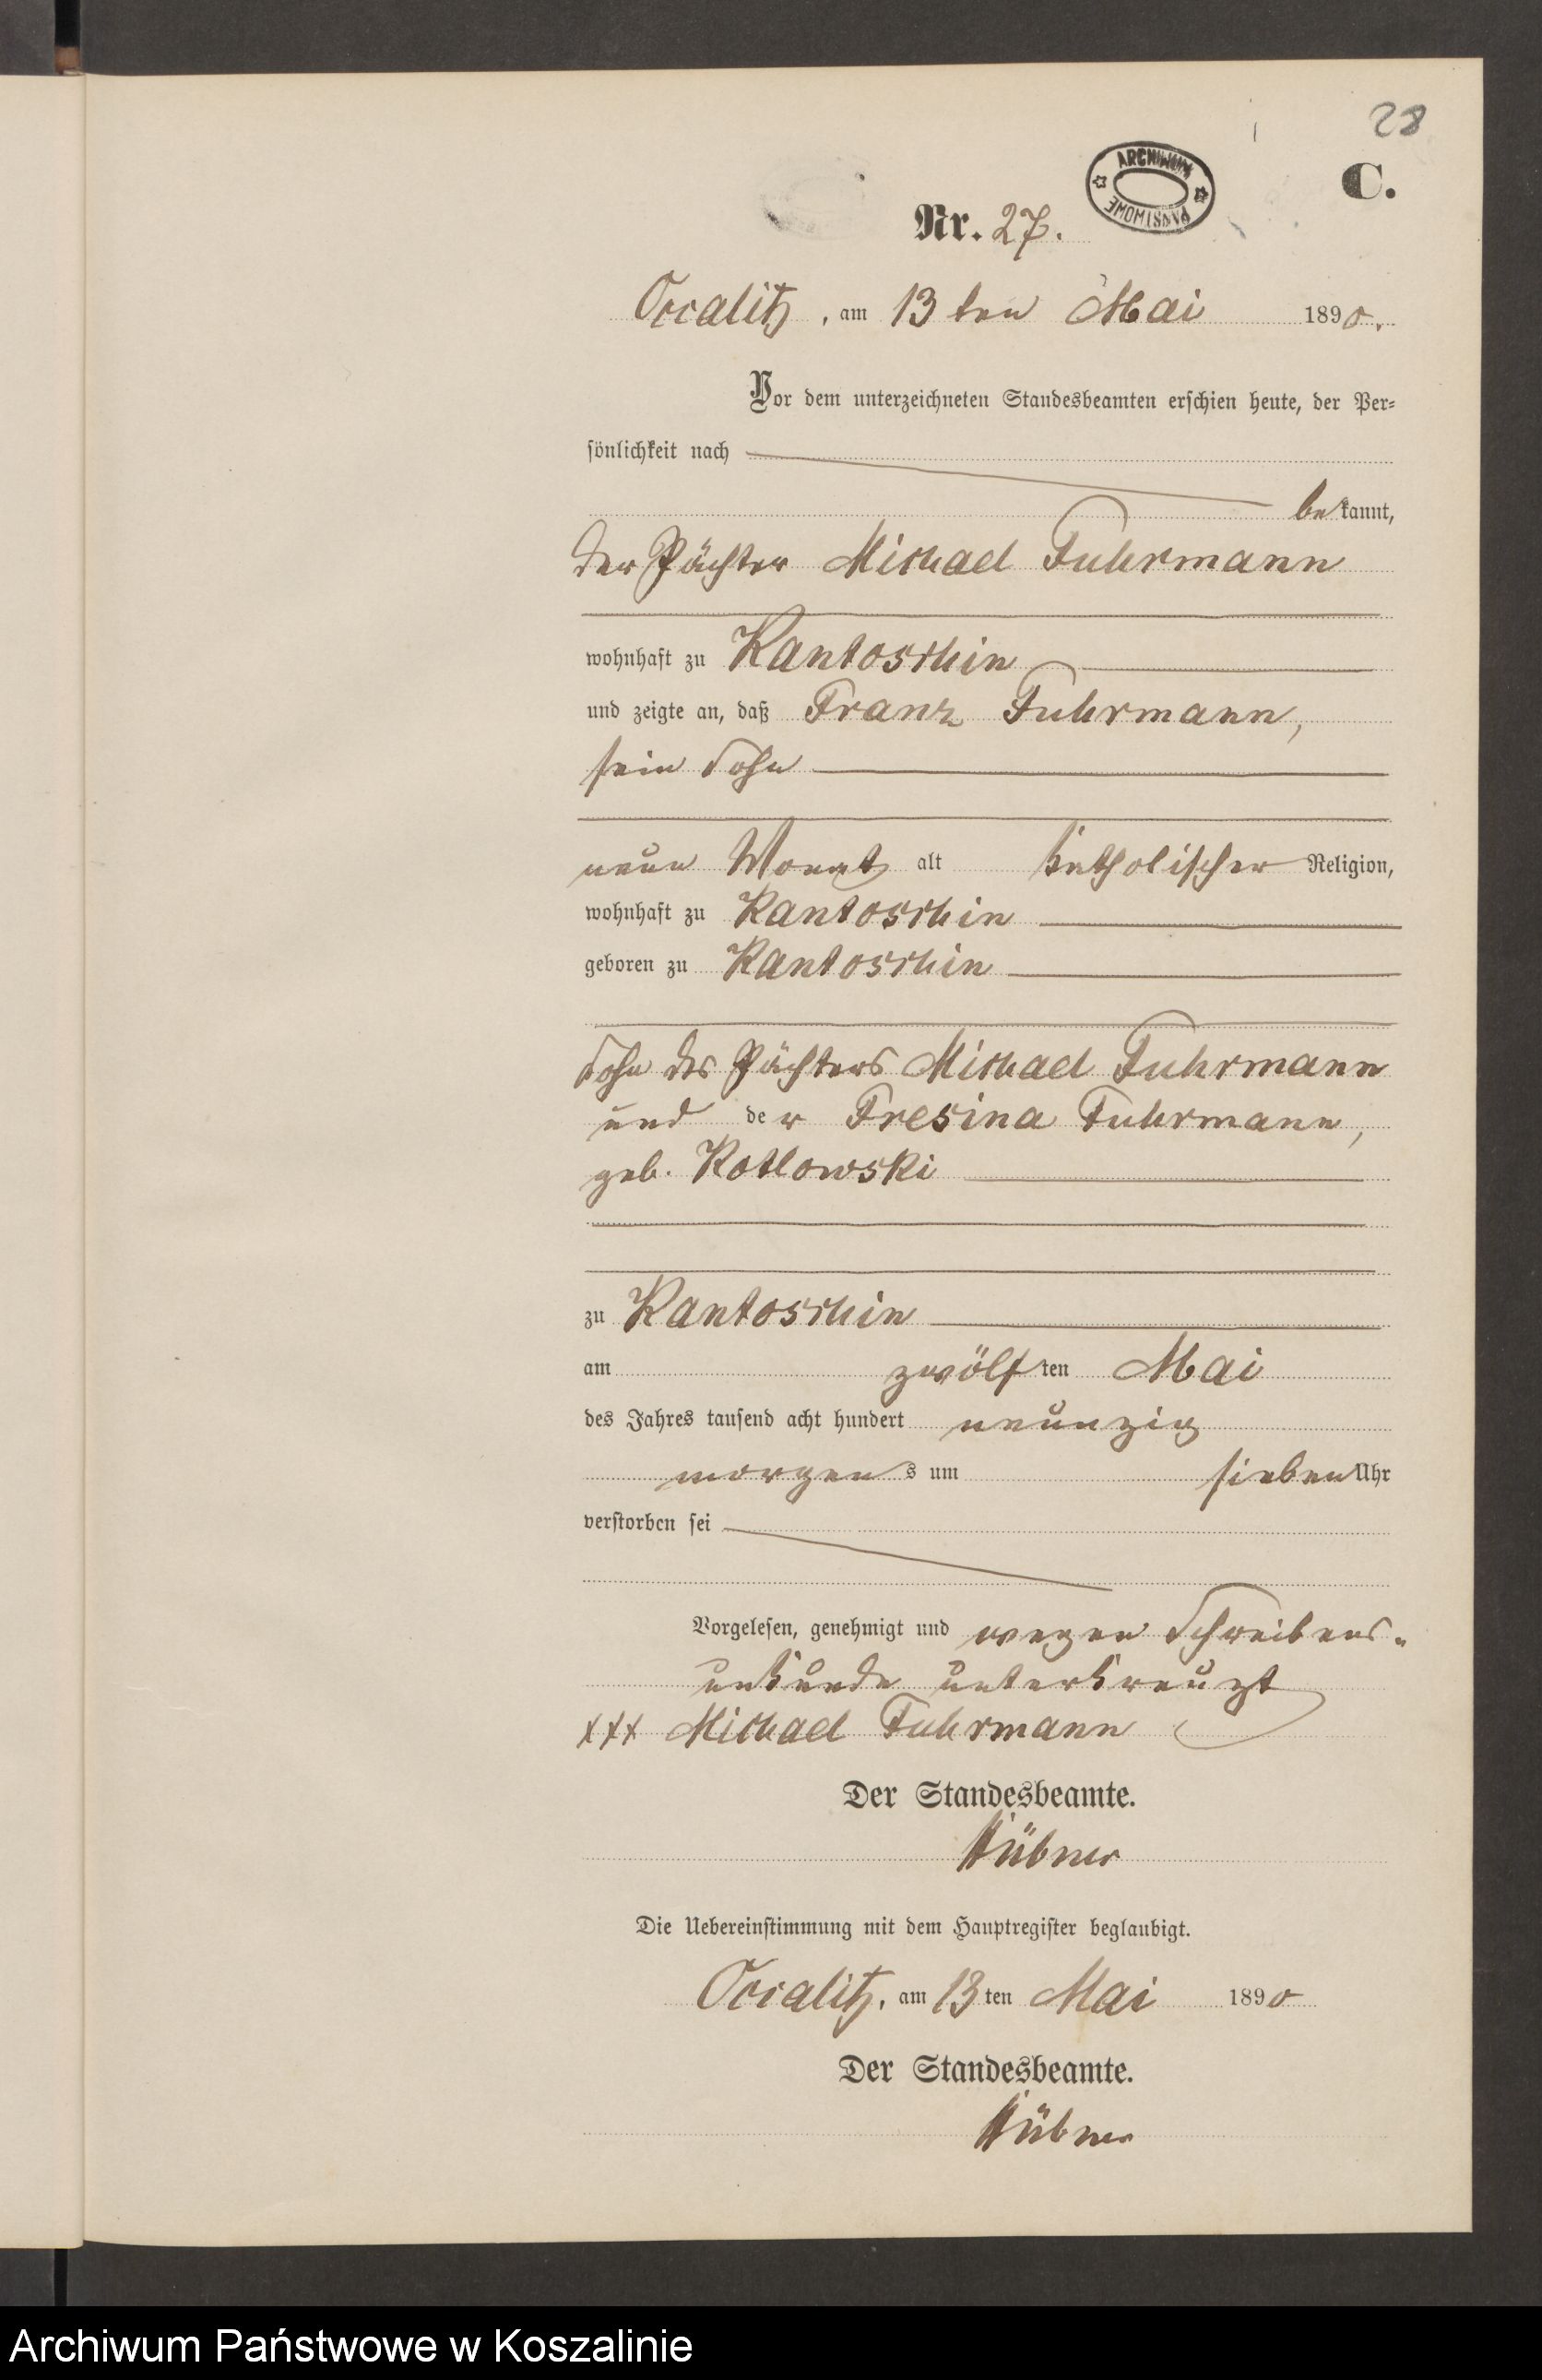 28
ARCHIWUM PAŃSTWOWE
C.
Nr. 27.
Occalitz, am 13ten Mai 1890.
Vor dem unterzeichneten Standesbeamten erschien heute, der Per-
sönlichkeit nach
bekannt,
der Pächter Michael Fuhrmann
wohnhaft zu Kantoschin
und zeigte an, daß Franz Fuhrmann,
sein Sohn
neun Monat alt katholischer Religion,
wohnhaft zu Kantoschin
geboren zu Kantoschin
Sohn des Pächters Michael Fuhrmann
und der Fresina Fuhrmann,
geb. Kotlowski
zu Kantoschin
am zwölften Mai
des Jahres tausend acht hundert neunzig
morgens um sieben Uhr
verstorben sei
Vorgelesen, genehmigt und wegen Schreibens-
unkunde unterkreuzt
xxx Michael Fuhrmann
Der Standesbeamte.
Hübner
Die Uebereinstimmung mit dem Hauptregister beglaubigt.
Occalitz, am 13ten Mai 1890
Der Standesbeamte.
Hübner
Archiwum Państwowe w Koszalinie